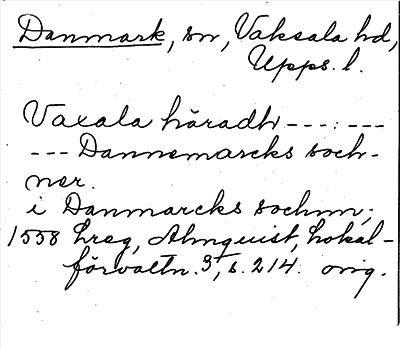 Danmark, sn, Vaksala hd,
Upps. l.
Vaxala häradh ---:---
--- Dannemarcks soch-
ner.
i Danmarcks sochnn;
1558 hreg, Almquist, Lokal-
förvaltn. 3, s. 214. orig.